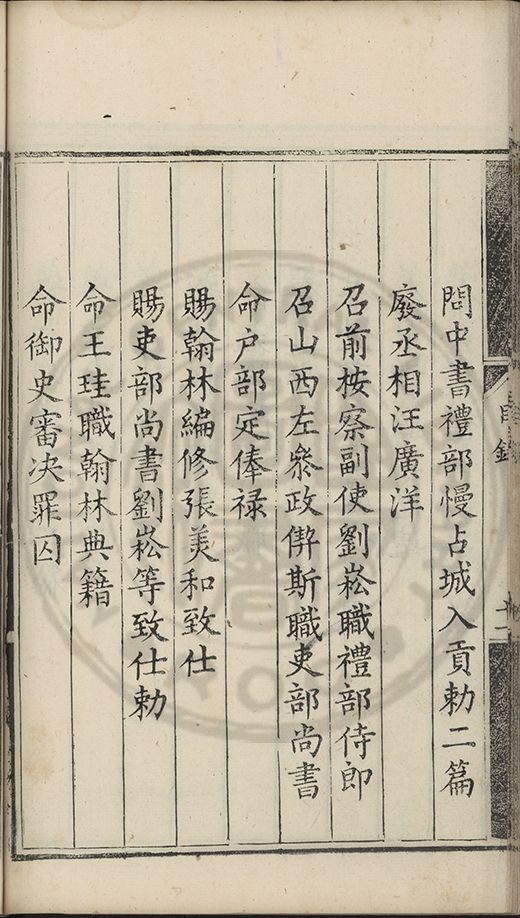 問中書禮部慢占城入貢勅二篇
廢丞相汪廣洋
召前按察副使劉崧職禮部侍郎
召山西左叅政偰斯職吏部尚書
命户部定俸禄
賜翰林編修張美和致仕
賜吏部尚書劉崧等致仕勅
命王珪職翰林典籍
命御史審决罪囚
目錄